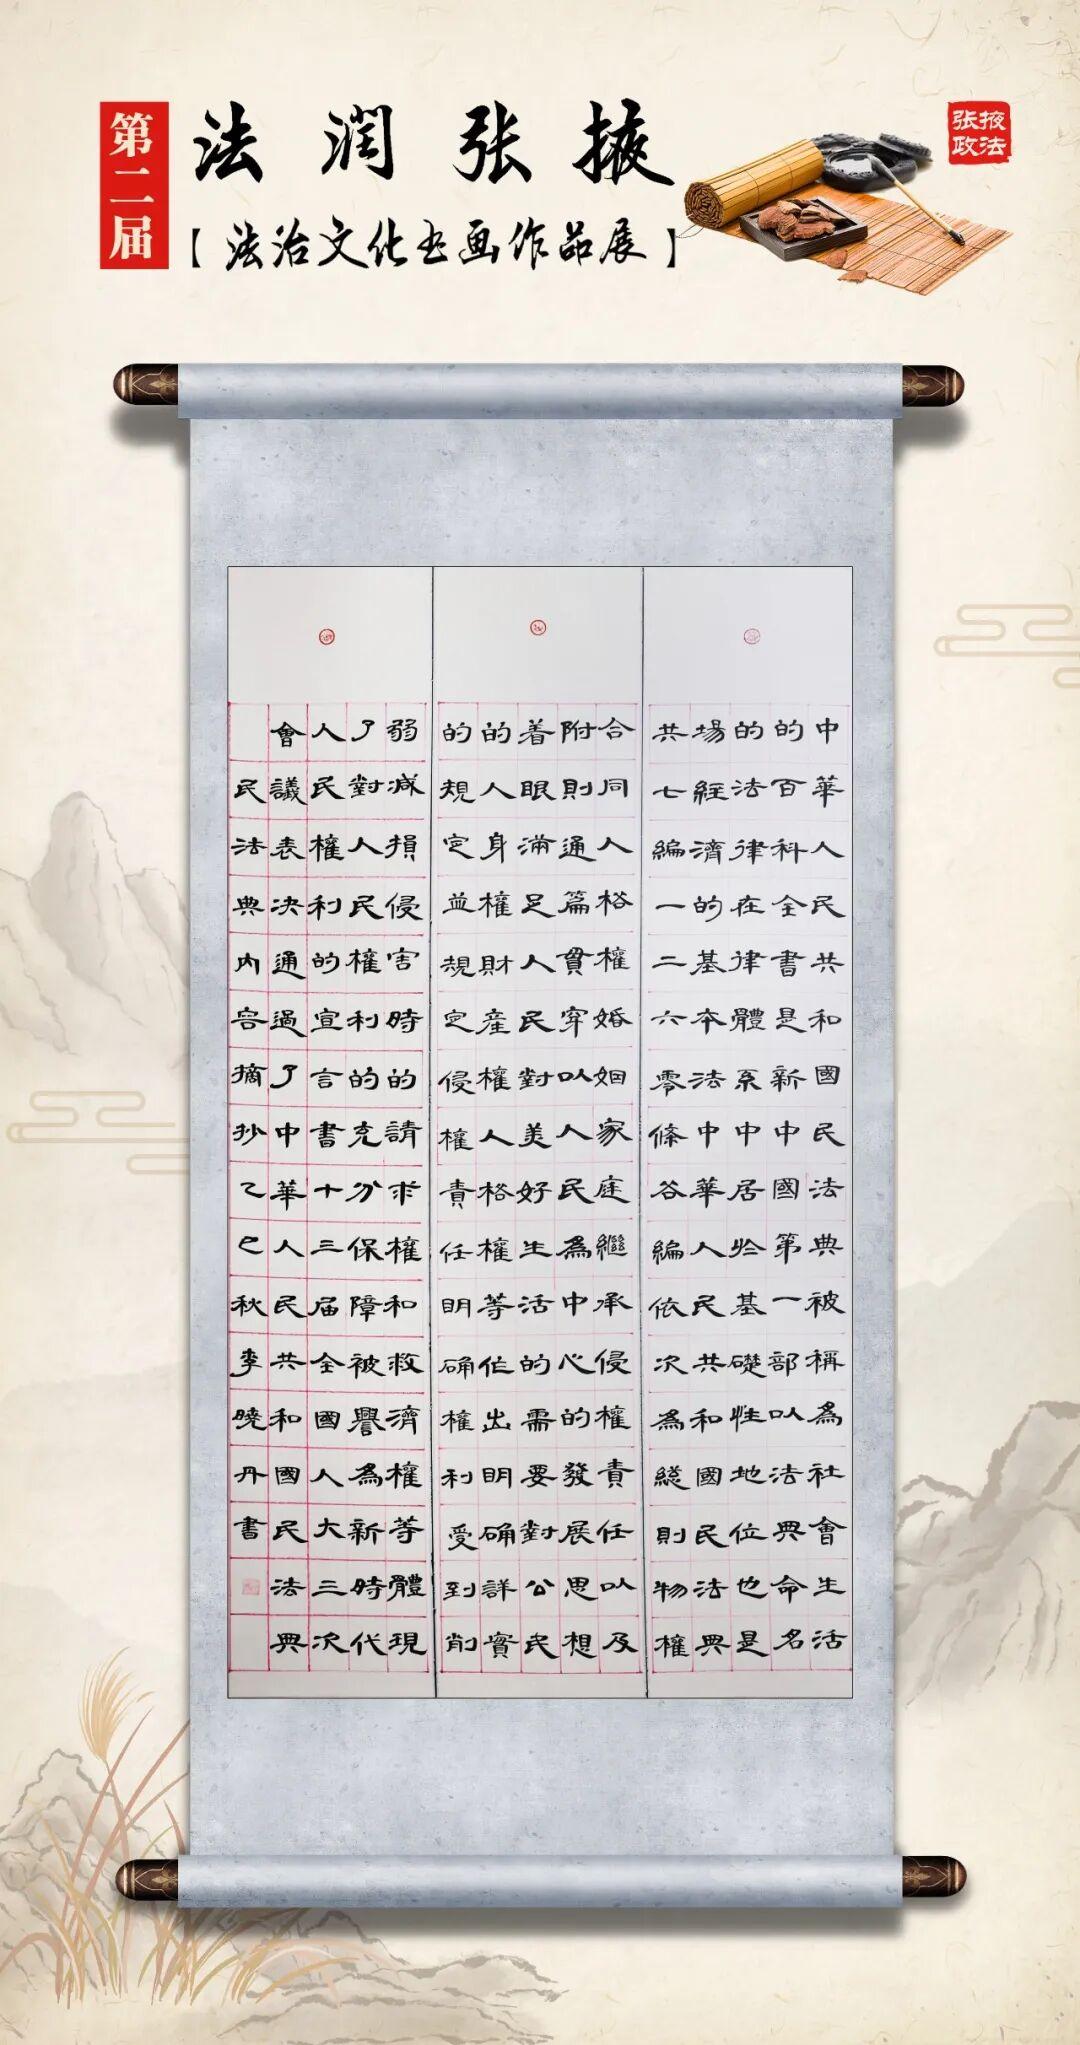 第二届
法润张掖
【法治文化书画作品展】
张掖政法
中華人民共和國民法典被稱為社會生活
的百科全書是新中國第一部以法典命名
的法律在律體系中居於基礎性地位也是
場經濟的基本法中華人民共和國民法典
共七編一二六零條各編依次為總則物權
合同人格權婚姻家庭繼承侵權責任以及
附則通篇貫穿以人民為中心的發展思想
着眼滿足人民對美好生活的需要對公民
的人身權財産權人格權等作出明确詳實
的規定並規定侵權責任明确權利受到削
弱减損侵害時的請求權和救濟權等體現
了對人民權利的充分保障被譽為新時代
人民權利的宣言書十三届全國人大三次
會議表决通過了中華人民共和國民法典
民法典内容摘抄乙巳秋李曉丹書